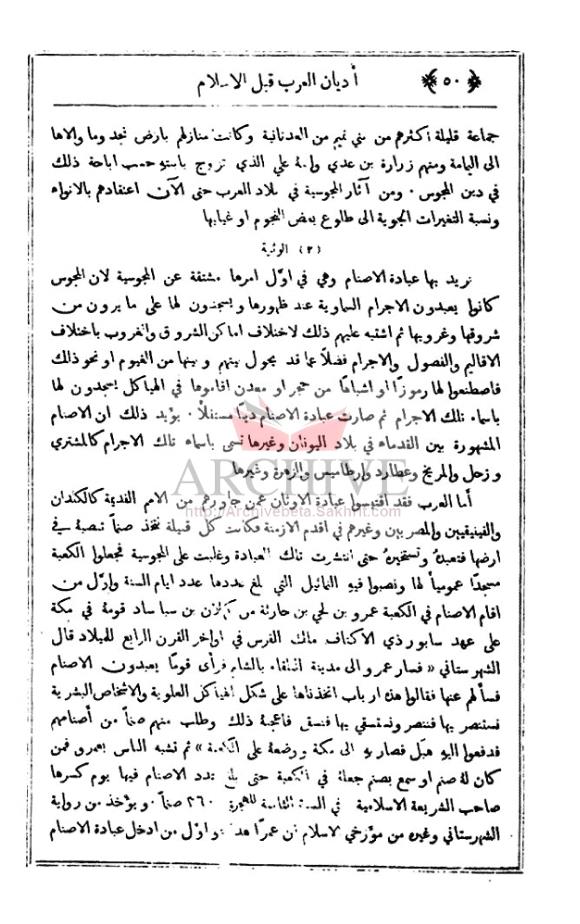 ﴿ ٥٠ ﴾ أديان العرب قبل الاسلام
جماعة قليلة أكثرهم من بني تميم من العدنانية وكانت منازلهم بارض نجد وما والاها
الى اليمامة ومنهم زرارة بن عدي وابنه علي الذي تزوج بابنته حسب اباحة ذلك
في دين المجوس · ومن آثار المجوسية في بلاد العرب حتى الآن اعتقادهم بالانواء
ونسبة التغيرات الجوية الى طلوع بعض النجوم او غيابها
(٢) الوثنية
نريد بها عبادة الاصنام وهي في اوّل امرها مشتقة عن المجوسية لان المجوس
كانوا يعبدون الاجرام السماوية عند ظهورها ويسجدون لها على ما يرون من
شروقها وغروبها ثم اشتبه عليهم ذلك لاختلاف اماكن الشروق والغروب باختلاف
الاقاليم والفصول والاجرام فضلاً عما قد يحول بينهم وبينها من الغيوم او نحو ذلك
فاصطنعوا لها رموزًا او اشباهًا من حجر او معدن اقاموها في الهياكل يسجدون لها
باسماء تلك الاجرام ثم صارت عبادة الاصنام دينًا مستقلاً · يؤيد ذلك ان الاصنام
المشهورة بين القدماء في بلاد اليونان وغيرها تسمى باسماء تلك الاجرام كالمشتري
وزحل والمريخ وعطارد وارطاميس والزهرة وغيرها
ARCHIVE
http://Archivebeta.Sakhrit.com
أما العرب فقد اقتبسوا عبادة الاوثان عمن جاورهم من الامم القديمة كالكلدان
والفينيقيين والمصريين وغيرهم في اقدم الازمنة فكانت كل قبيلة تتخذ صنمًا تنصبه في
ارضها فتعبده وتستخيره حتى انتشرت تلك العبادة وغلبت على المجوسية فجعلوا الكعبة
مسجدًا عموميًا لها ونصبوا فيه التماثيل التي بلغ عددها عدد ايام السنة واوّل من
اقام الاصنام في الكعبة عمرو بن لحي بن حارثة من كهلان بن سبا ساد قومه في مكة
على عهد سابور ذي الاكتاف ملك الفرس في اواخر القرن الرابع للميلاد قال
الشهرستاني « فسار عمرو الى مدينة البلقاء بالشام فرأى قومًا يعبدون الاصنام
فسألهم عنها فقالوا هذه ارباب اتخذناها على شكل الهياكل العلوية والاشخاص البشرية
نستنصر بها فننصر ونستسقي بها فنسقى فاعجبه ذلك وطلب منهم صنمًا من أصنامهم
فدفعوا اليه هبل فصار به الى مكة ووضعه على الكعبة » ثم تشبه الناس بعمرو فمن
كان له صنم او سمع بصنم جعله في الكعبة حتى بلغ عدد الاصنام فيها يوم كسرها
صاحب الشريعة الاسلامية في السنة الثامنة للهجرة ٣٦٠ صنمًا · ويؤخذ من رواية
الشهرستاني وغيره من مؤرخي الاسلام ان عمرًا هذا هو اوّل من ادخل عبادة الاصنام